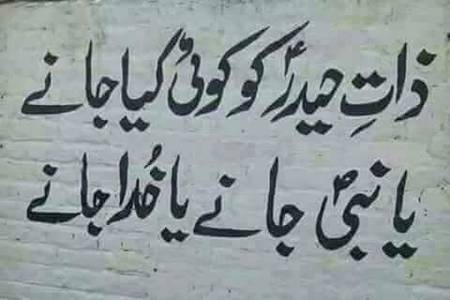 ذاتِ حیدرؑ کو کوئی کیا جانے
یا نبیؐ جانے یا خُدا جانے